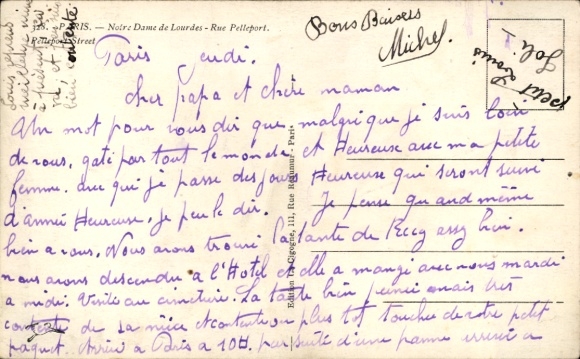 PARIS. — Notre Dame de Lourdes - Rue Pelleport.
Pelleport Street
Bons Baisers
Michel.
petit Louis
Joli
contente
Paris jeudi.
Cher papa et chère maman
Un mot pour vous dir que malgré que je suis loin
de vous, gaté par tout le monde et Heureuse avec ma petite
femme. avec qui je passe des jours Heureuse qui seront suivi
d'année Heureuse, je peu le dir. Je pense quand même
bien a vous. Nous avons trouvé la tante de assy bien.
nous avons descendu a l'Hotel et elle a mangé avec nous mardi
a midi. au cimetière. La tante bien peinée mais très
contente de sa nièce et contente plus tot touchée de votre petit
paquet. Arrivé a Paris a 10H. par suite d'une panne a
Edition La Cigogne, 111, Rue Réaumur - Paris